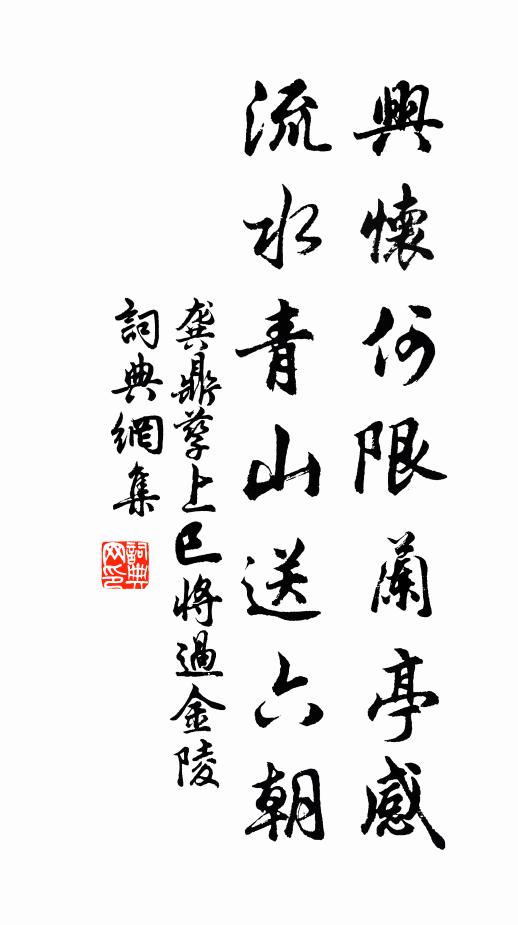 興懷何限蘭亭感
流水青山送六朝
龔鼎孳上巳將過金陵
詞典網集
詞典網印